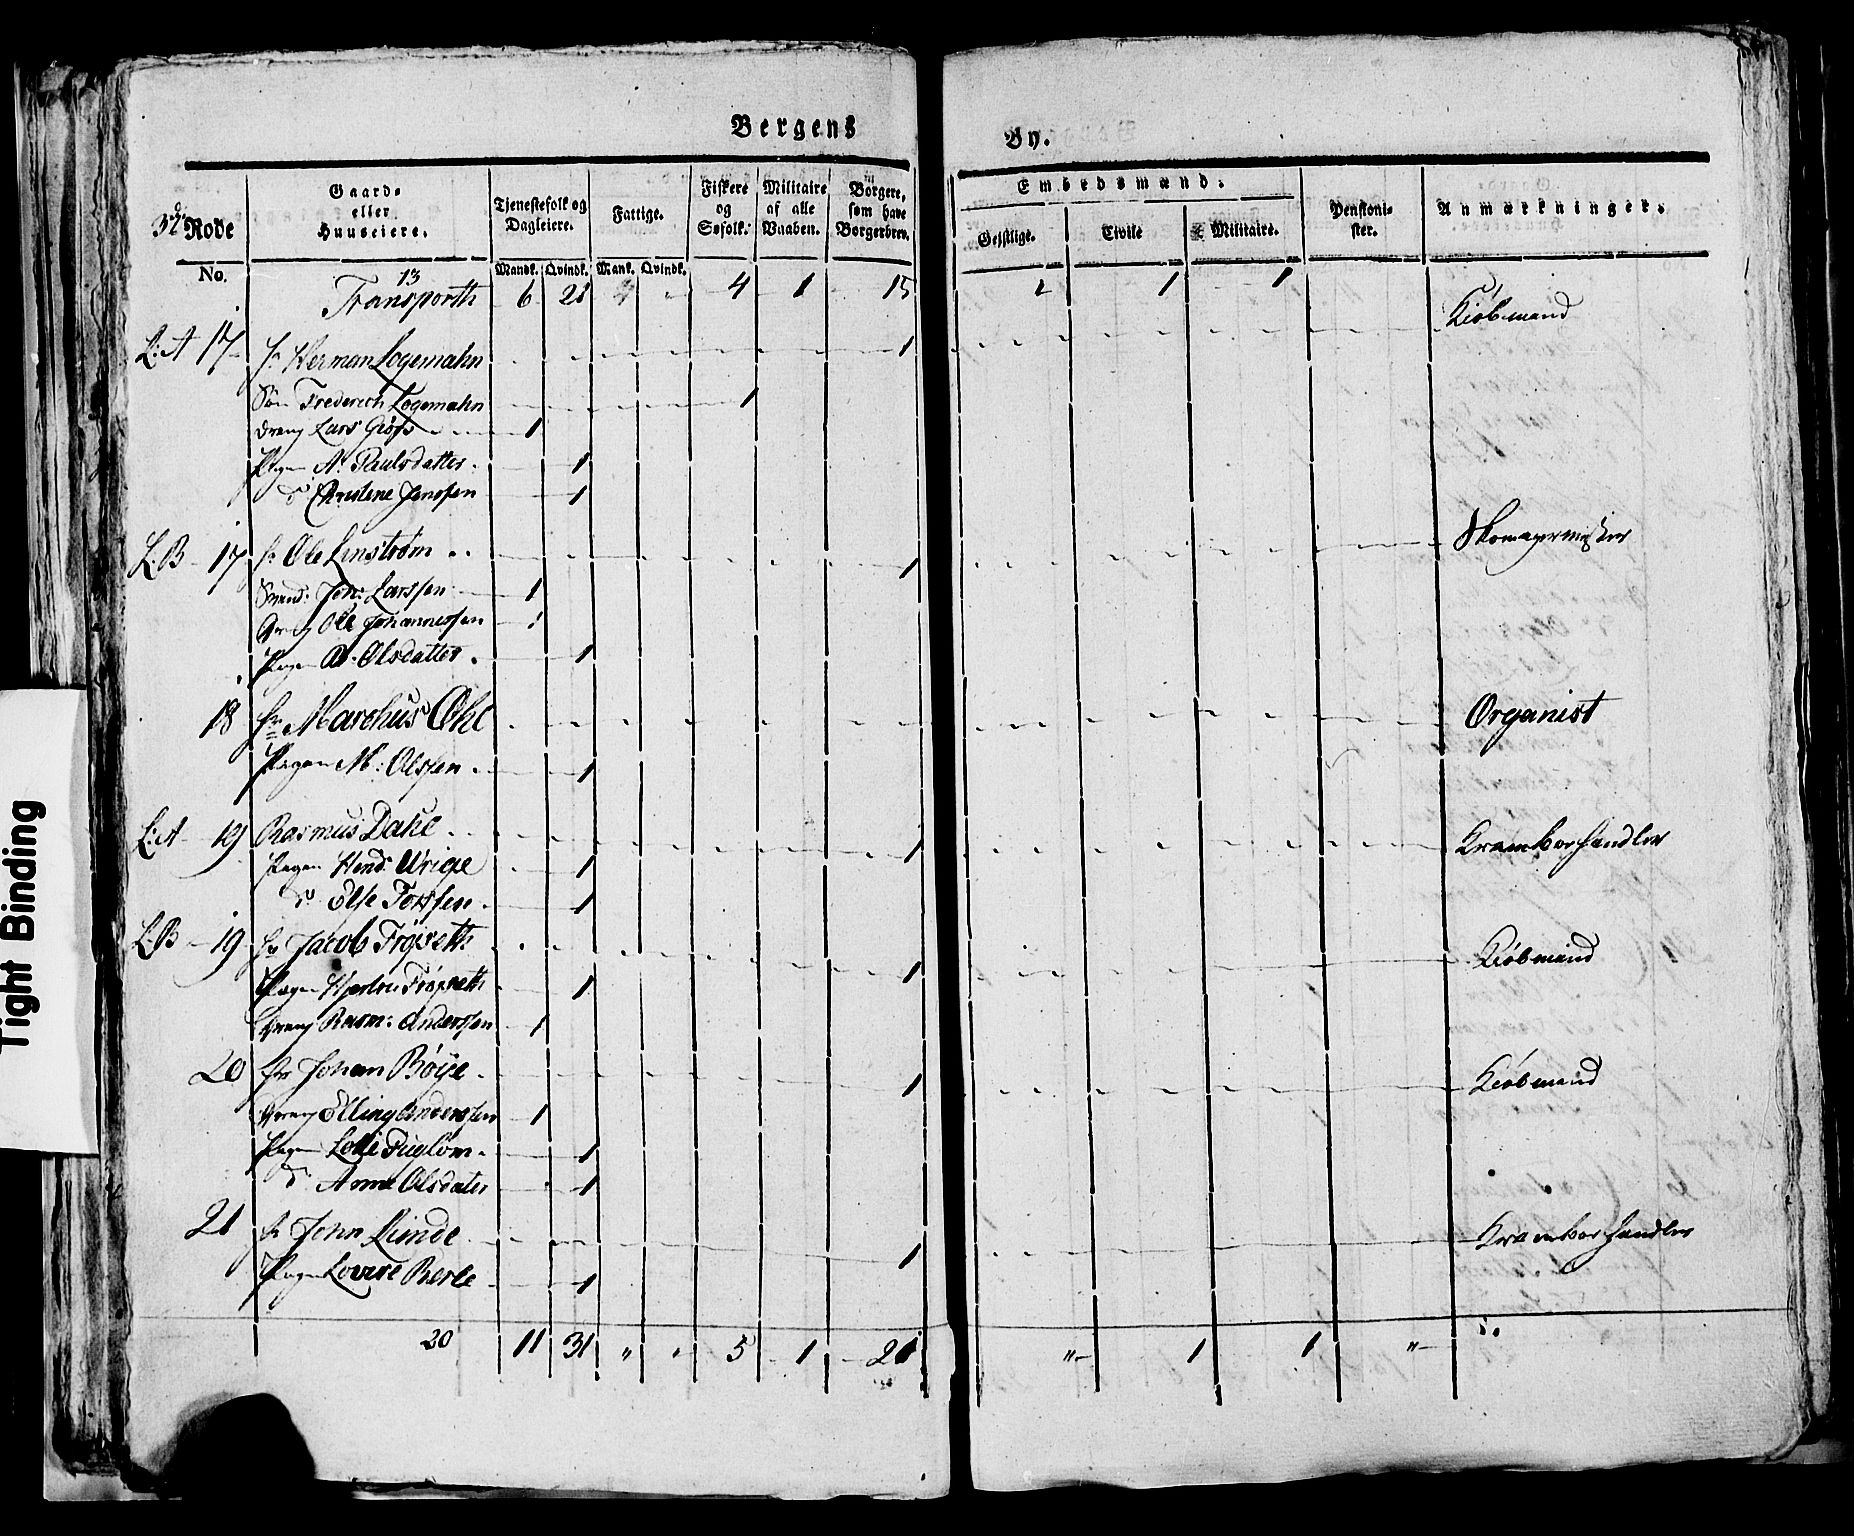 Bergens By.
3d Rode
No.
Gaard- eller Huuseiere.
Tjenestefolk og Dagleiere. Mandk. Qvindk.
Fattige. Mank. Qvindk.
Fiskere og Søfolk.
Militaire af alle Vaaben.
Borgere, som have Borgerbrev.
Embedsmænd: Geistlige. Civile Militaire.
Pensionister.
Anmærkninger.
13
Transporth 6 21 4 1 15 1 1
L: A 17 Hr Herman Logemahn 1 Kiøbmand
Søn Frederich Logemahn 1
Dreng Lars 1
Pigen A: Paulsdatter 1
do Christene Jenssen 1
L: B 17 Hr Ole Linstrøm 1 Skomagermester
Svend: Joh: Larssen 1
Dreng Ole Johannessen 1
Pigen A: Olsdatter 1
18 Hr Marchus Ohl Organist
Pigen M: Olssen 1
L: A 19 Rasmus Dahl 1 Kramboehandler
Pigen Hend: Wrige 1
do Else Torssen 1
L: B 19 Hr Jacob 1 Kiøbmand
Pigen 1
Dreng Rasm: Anderssen 1
20 Hr Johan Bøye 1 Kiøbmand
Dreng Elling Anderssen 1
Pigen 1
do Anne Olsdater 1
21 Hr John Lunde 1 Kramboehandler
Pigen Lovise Berle 1
20 11 31 " " 5 1 21 " 1 1 "
Tight Binding